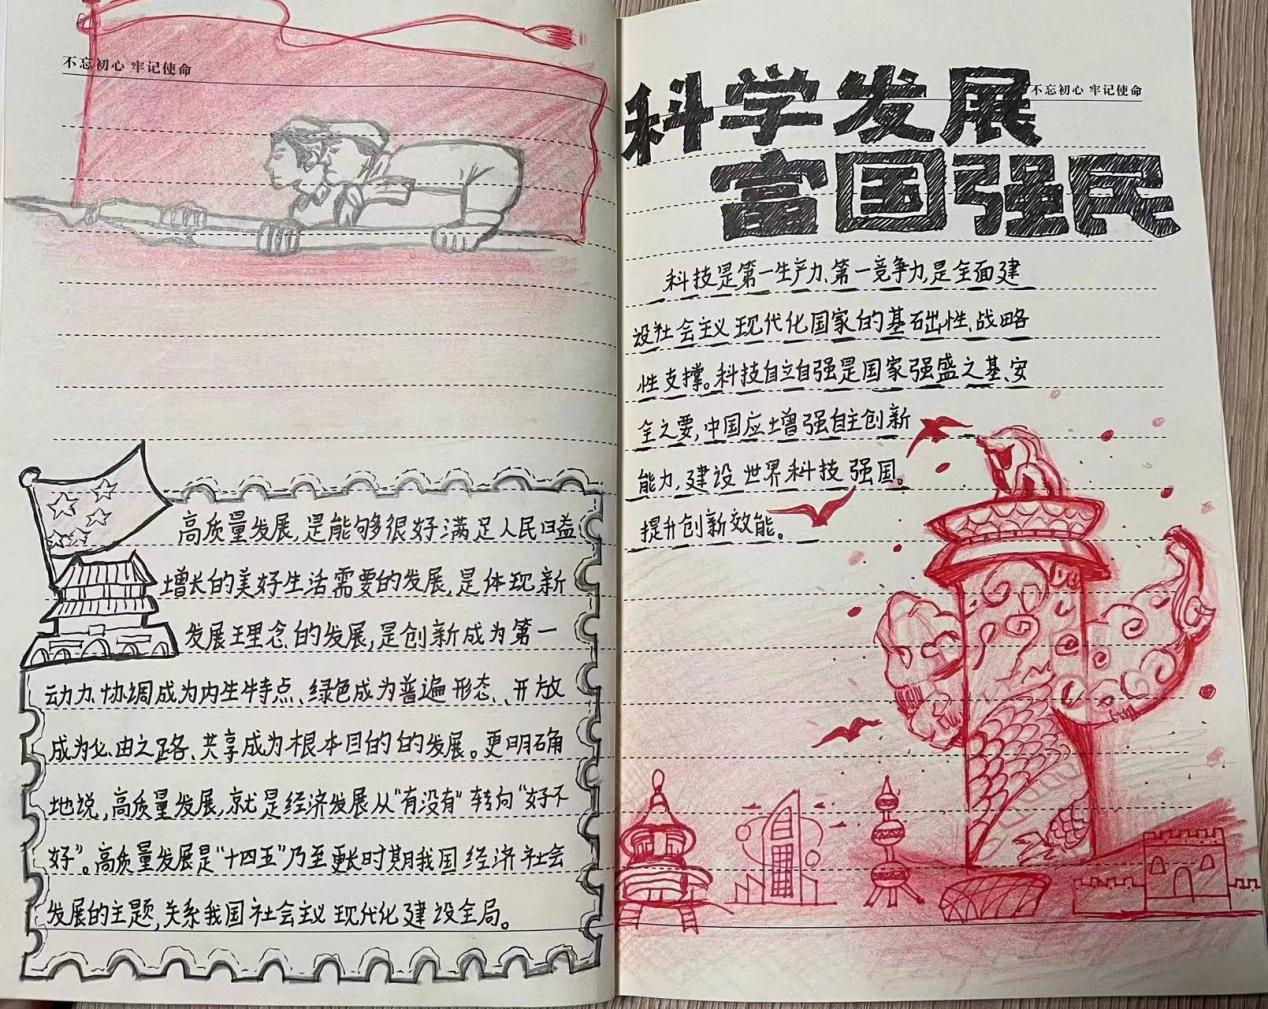 不忘初心 牢记使命
高质量发展,是能够很好满足人民日益
增长的美好生活需要的发展,是体现新
发展理念的发展,是创新成为第一
动力、协调成为内生特点、绿色成为普遍形态、开放
成为必由之路、共享成为根本目的的发展。更明确
地说,高质量发展,就是经济发展从“有没有”转向“好不
好”。高质量发展是“十四五”乃至更长时期我国经济社会
发展的主题,关系我国社会主义现代化建设全局。
不忘初心 牢记使命
科学发展
富国强民
科技是第一生产力、第一竞争力,是全面建
设社会主义现代化国家的基础性、战略
性支撑。科技自立自强是国家强盛之基、安
全之要,中国应土增强自主创新
能力,建设世界科技强国。
提升创新效能。